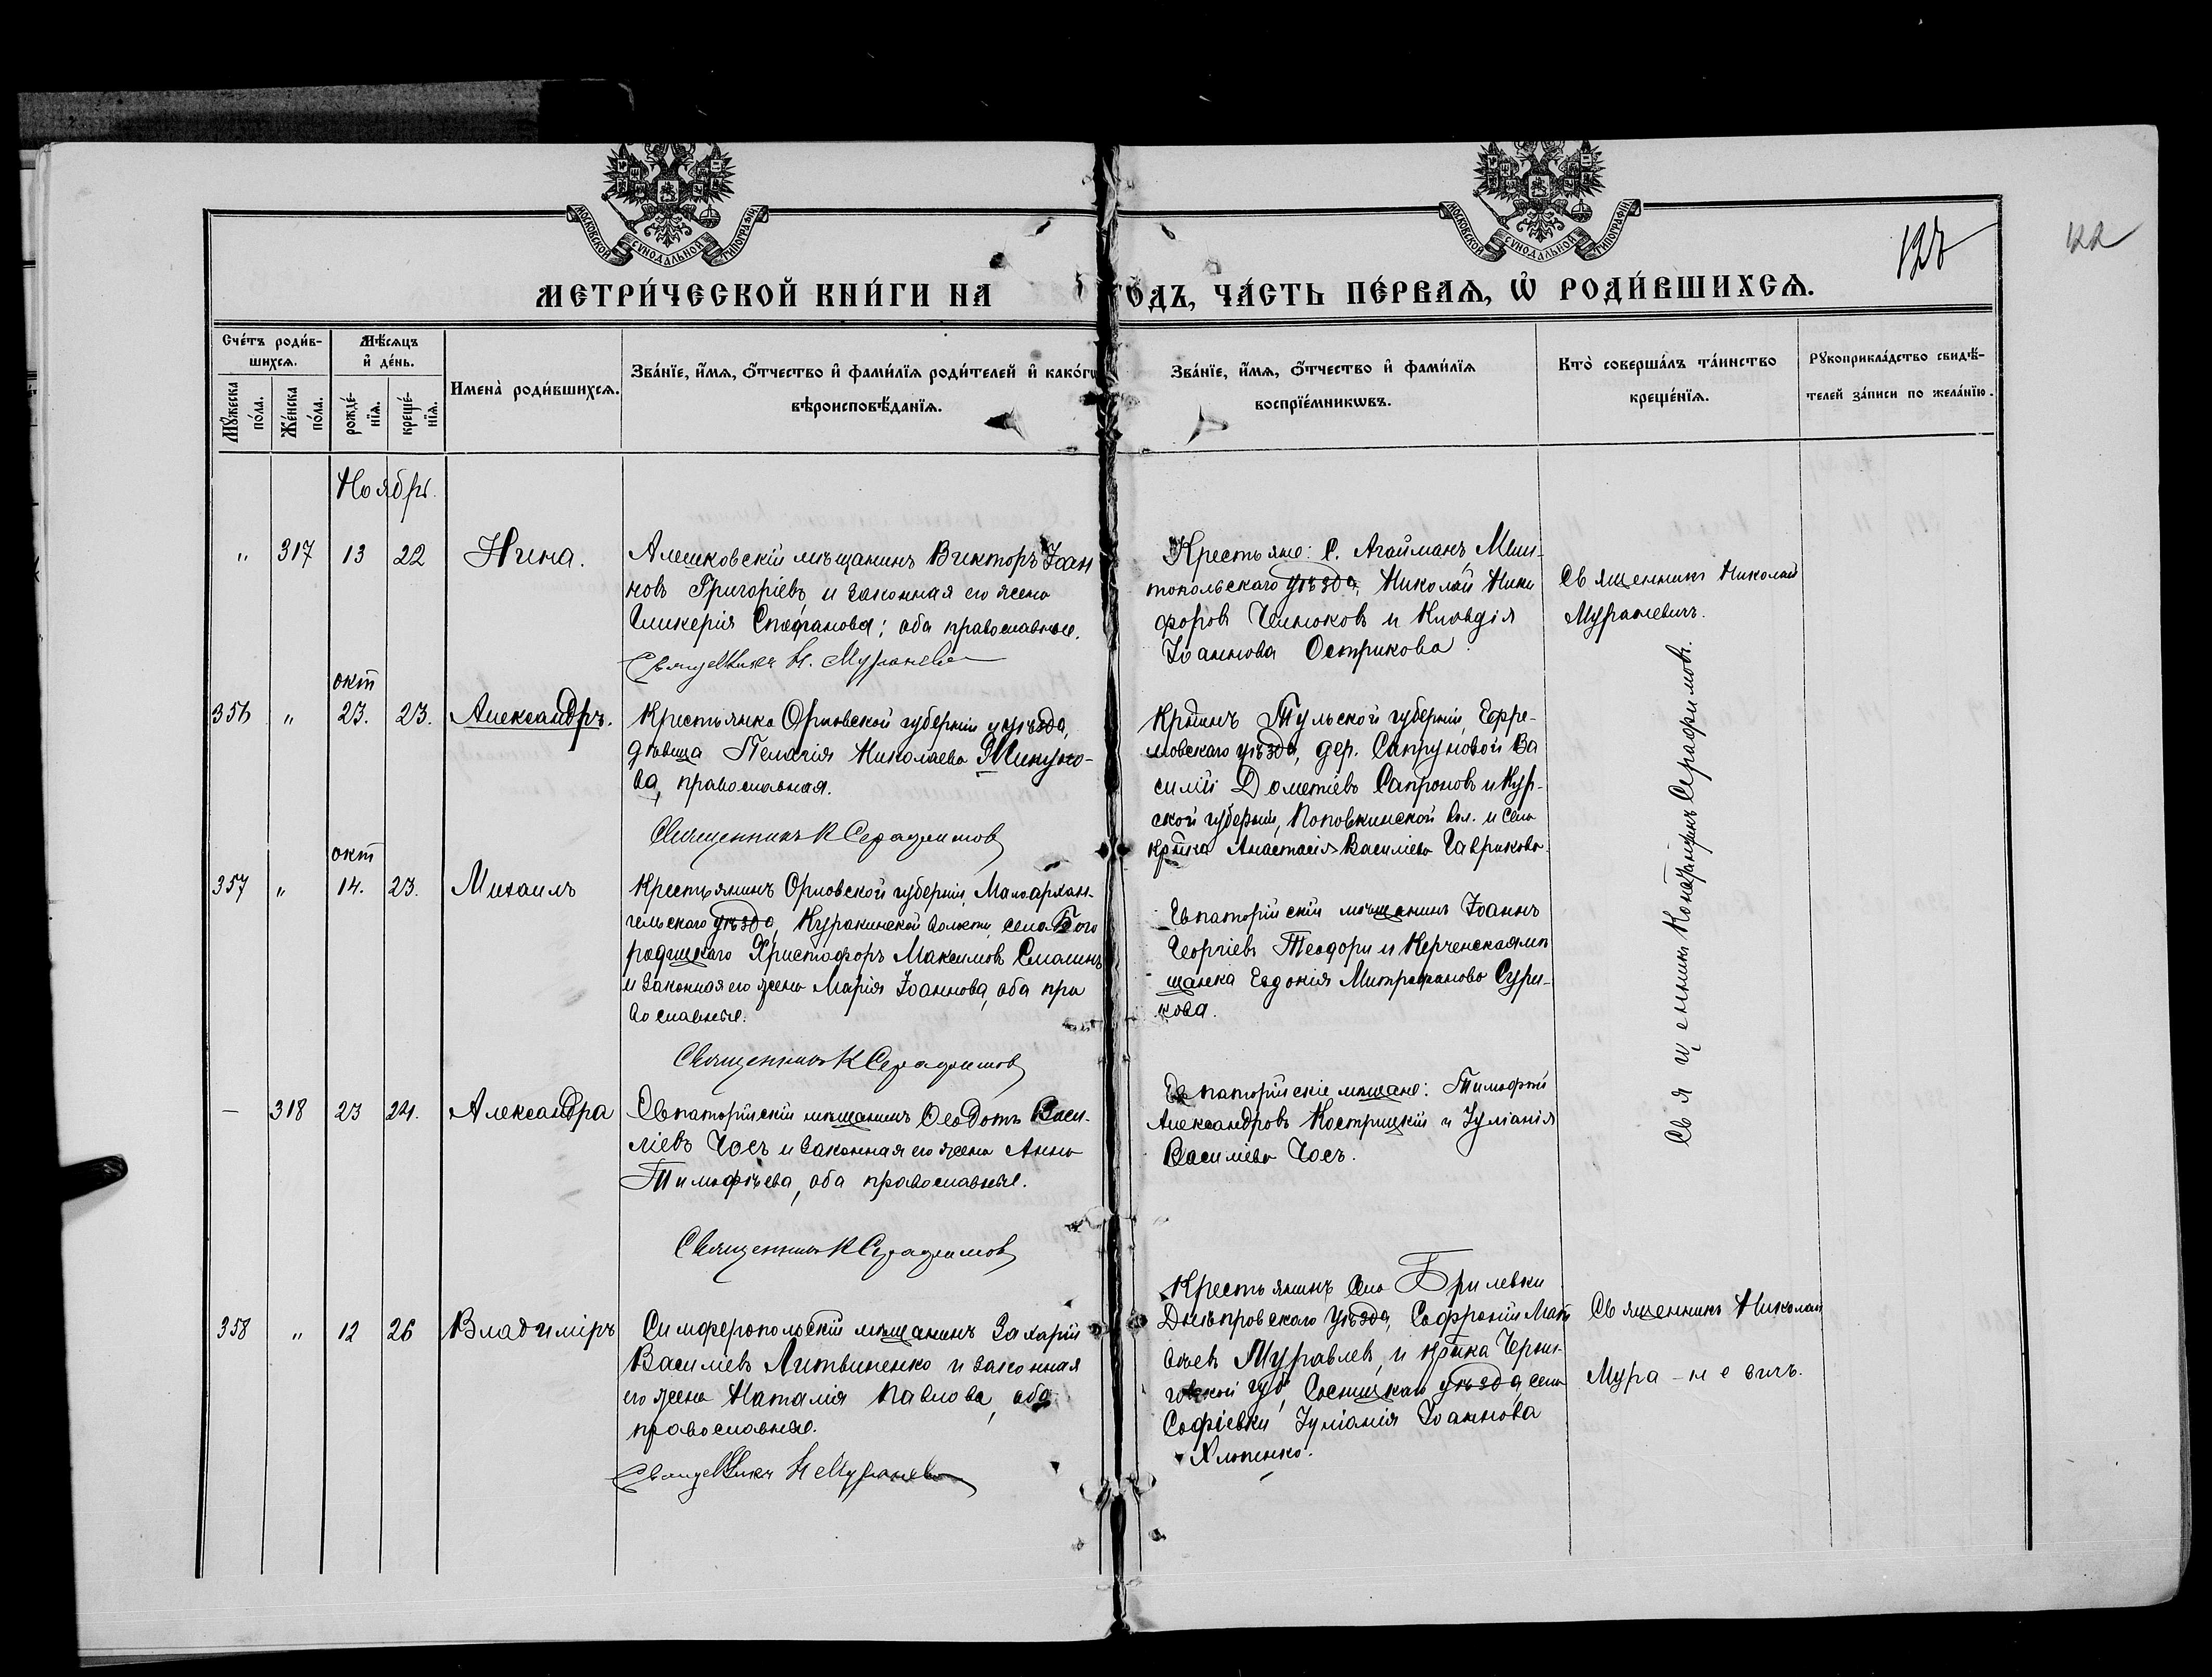 МОСКОВСКОЙ СѴНОДАЛЬНОЙ ТИПОГРАФІИ.
МОСКОВСКОЙ СѴНОДАЛЬНОЙ ТИПОГРАФІИ
МЕТРИ́ЧЕСКОЙ КНИ́ГИ НА
ГО́ДЪ, ЧА́СТЬ ПЕ́РВАѦ, Ѡ҆ РОДИ́ВШИХСѦ.
122
Сче́тъ роди́в-
шихсѧ.
Мꙋ́жеска
по́ла.
Же́нска
по́ла.
Мѣ́сѧцъ
и҆ де́нь.
рожде́-
нїѧ.
креще́-
нїѧ.
Имена̀ роди́вшихсѧ.
Зва́нїе, и҆́мѧ, ѻ҆́тчество и҆ фами́лїѧ роди́телей и҆ како́гѡ
вѣроисповѣ́данїѧ.
Зва́нїе, и҆́мѧ, ѻ҆́тчество и҆ фами́лїѧ
воспрїе́мникѡвъ.
Кто̀ соверша́лъ та́инство
креще́нїѧ.
Рꙋкоприкла́дство свидѣ́-
телей за́писи по жела́нїю.
Ноябрь.
" 317 13 22 Нина.
Алешковскій мѣщанинъ Викторъ Іоан
новъ Григоріевъ и законная его жена
Гликерія Стефанова; оба православные.
Священникъ Н. Мураневич
Крестьяне: С. Агайманъ Мели-
топольскаго уѣзда, Николай Ники
форовъ Челюковъ и Клавдія
Іоаннова Острикова.
Священникъ Николай
Мураневичъ.
окт
356 " 23. 23. Александръ.
Крестьянка Орловской губерніи и уѣзда,
дѣвица Пелагія Николаева Микуно-
ва, православная.
Священникъ К Серафимов
Кр̃нинъ Тульской губерніи, Ефре-
мовскаго уѣзда, дер. Сапруновой Ва
силій Дометіевъ Сапроновъ и Кур-
ской губерніи, Поповкинской вол. и села
кр̃нка Анастасія Василіева Гаврикова.
Священникъ Константинъ Серафимовъ.
окт
357 " 14. 23. Михаилъ
Крестьянинъ Орловской губерніи, Малоархан-
гельскаго уѣзда, Куракинской волости, села Бого
родицкаго Христофоръ Максимовъ Смалинъ
и законная его жена Марія Іоаннова, оба пра
вославные.
Священникъ К Серафимов
Евпаторійскій мѣщанинъ Іоаннъ
Георгіевъ Теодори и Керченская мѣ
щанка Евдокія Митрофанова Сури-
кова.
— 318 23 24. Александра
Евпаторійскій мѣщанинъ Ѳеодотъ Васи-
ліевъ Чосъ и законная его жена Анна
Тимофѣева, оба православные.
Священникъ К Серафимов
Евпаторійскіе мѣщане: Тимофей
Александровъ Кострицкій и Іуліанія
Василіева Чосъ.
358 " 12 26 Владиміръ
Симферопольскій мѣщанинъ Захарій
Василіевъ Литвиненко и законная
его жена Наталія Павлова, оба
православные.
Священникъ Н Мураневич
Крестьянинъ села Брилевки
Днѣпровскаго уѣзда, Софроній Мат
ѳѣевъ Муравлев, и кр̃нка Черни-
говской губ, Сосницкаго уѣзда, села
Софіевки Іуліанія Іоаннова
Хлопенко.
Священникъ Николай
Мура-невичъ.